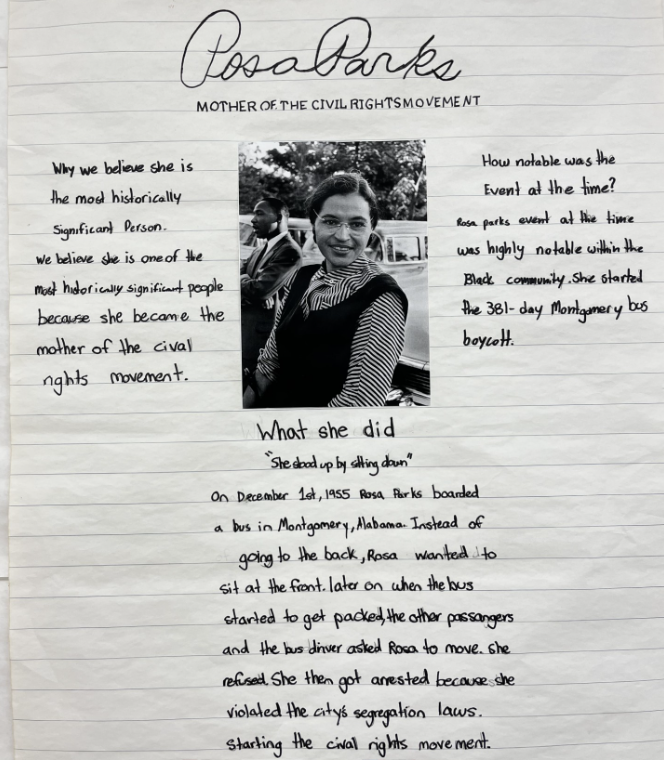 Rosa Parks
MOTHER OF THE CIVIL RIGHTS MOVEMENT
Why we believe she is
the most historically
Significant Person.
we believe she is one of the
most historically significant people
because she became the
mother of the cival
rights movement.
How notable was the
Event at the time?
Rosa parks event at the time
was highly notable within the
Black community. She started
the 381-day Montgomery bus
boycott.
What she did
"She stood up by sitting down"
On December 1st, 1955 Rosa Parks boarded
a bus in Montgomery, Alabama. Instead of
going to the back, Rosa wanted to
sit at the front. later on when the bus
started to get packed, the other passangers
and the bus driver asked Rosa to move. she
refused. She then got arrested because she
violated the city's segregation laws.
Starting the cival rights movement.